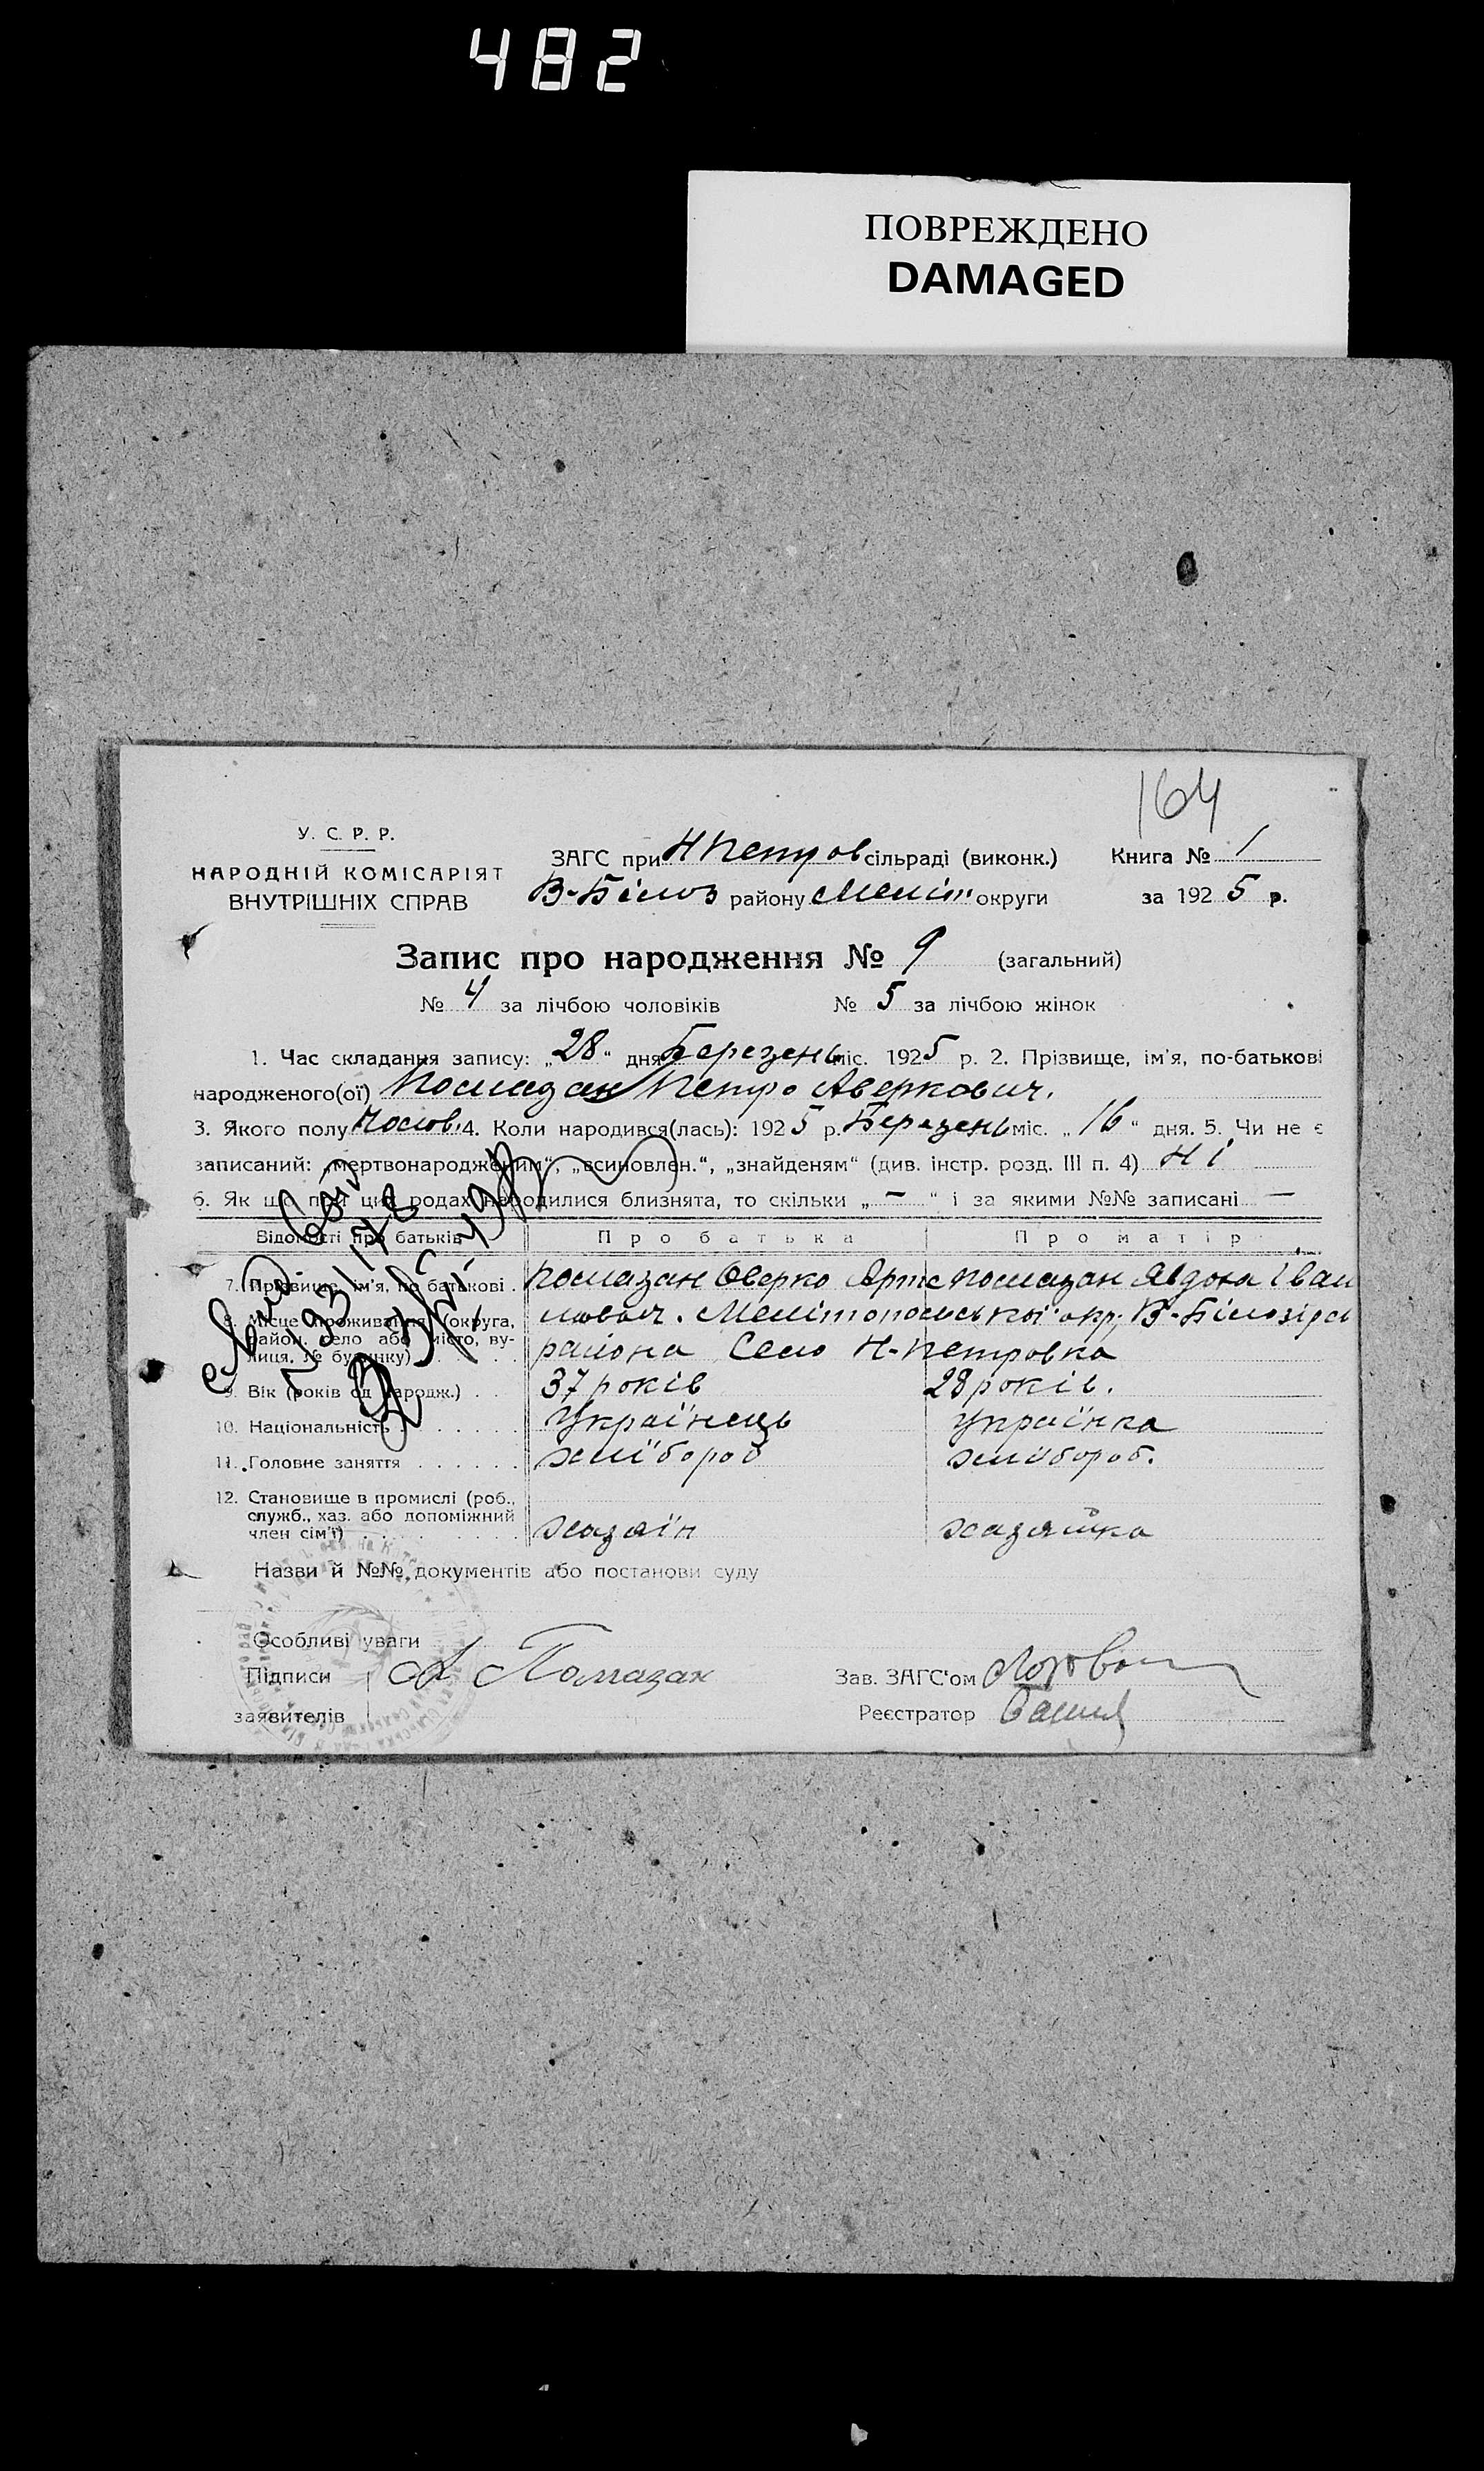 482
ПОВРЕЖДЕНО
DAMAGED
164
У. С. Р. Р.
НАРОДНІЙ КОМІСАРІЯТ
ВНУТРІШНІХ СПРАВ
ЗАГС при Н Петров сільраді (виконк.)
В-Білоз район у Меліт округи
Книга № 1
за 1925 р.
Запис про народження № 9 (загальний)
№ 4 за лічбою чоловіків № 5 за лічбою жінок
1. Час складання запису: „28“ дня Березень міс. 1925 р. 2. Прізвище, ім'я, по-батькові
народженого(ої) Помазан Петро Аверкович.
3. Якого полу Чолов. 4. Коли народився(лась): 1925 р. Березень міс. „16“ дня. 5. Чи не є
записаний: „мертвонародженим“, „всиновлен.“, „знайденям“ (див. інстр. розд. III п. 4) Ні
6. Як що при цих родах народилися близнята, то скільки „ — “ і за якими №№ записані —
Відомості про батьків Про батька Про матір
7. Прізвище, ім'я, по батькові . Помазан Оверко Арте Помазан Явдоха Іван
8. Місце проживання (округа, мович. Мелітопольської окр, В-Білозірсь
район, село або місто, ву-
лиця, № будинку) района Село Н-Петровка
9. Вік (років од народж.) . . 37 років 28 років.
10. Національність . . . . . . . Українець Українка
11. Головне заняття . . . . . . хлібороб хлібороб.
12. Становище в промислі (роб.,
служб., хаз. або допоміжний
член сім'ї) . . . . . . . . хазаїн хазяйка
Назви й №№ документів або постанови суду
Особливі уваги
Підписи А Помазан Зав. ЗАГС'ом
заявителів Реєстратор